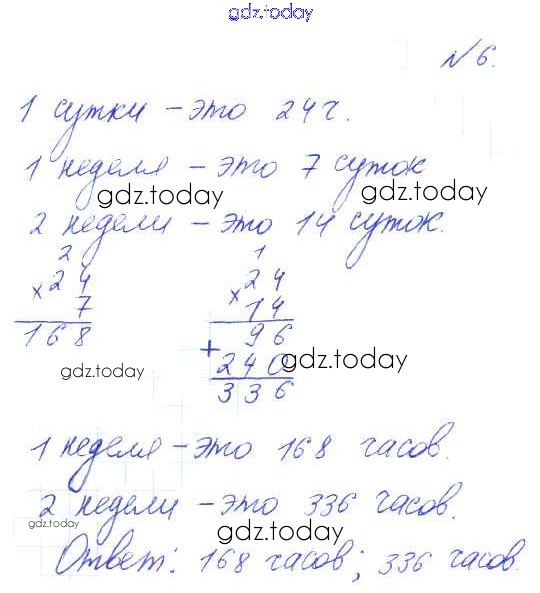 gdz.today
№ 6.
1 сутки – это 24 ч.
1 неделя – это 7 суток
gdz.today
gdz.today
2 недели – это 14 суток.
2
1
× 24
7
168
× 24
14
96
+ 240
336
gdz.today
gdz.today
1 неделя – это 168 часов.
2 недели – это 336 часов.
gdz.today
gdz.today
Ответ: 168 часов; 336 часов.